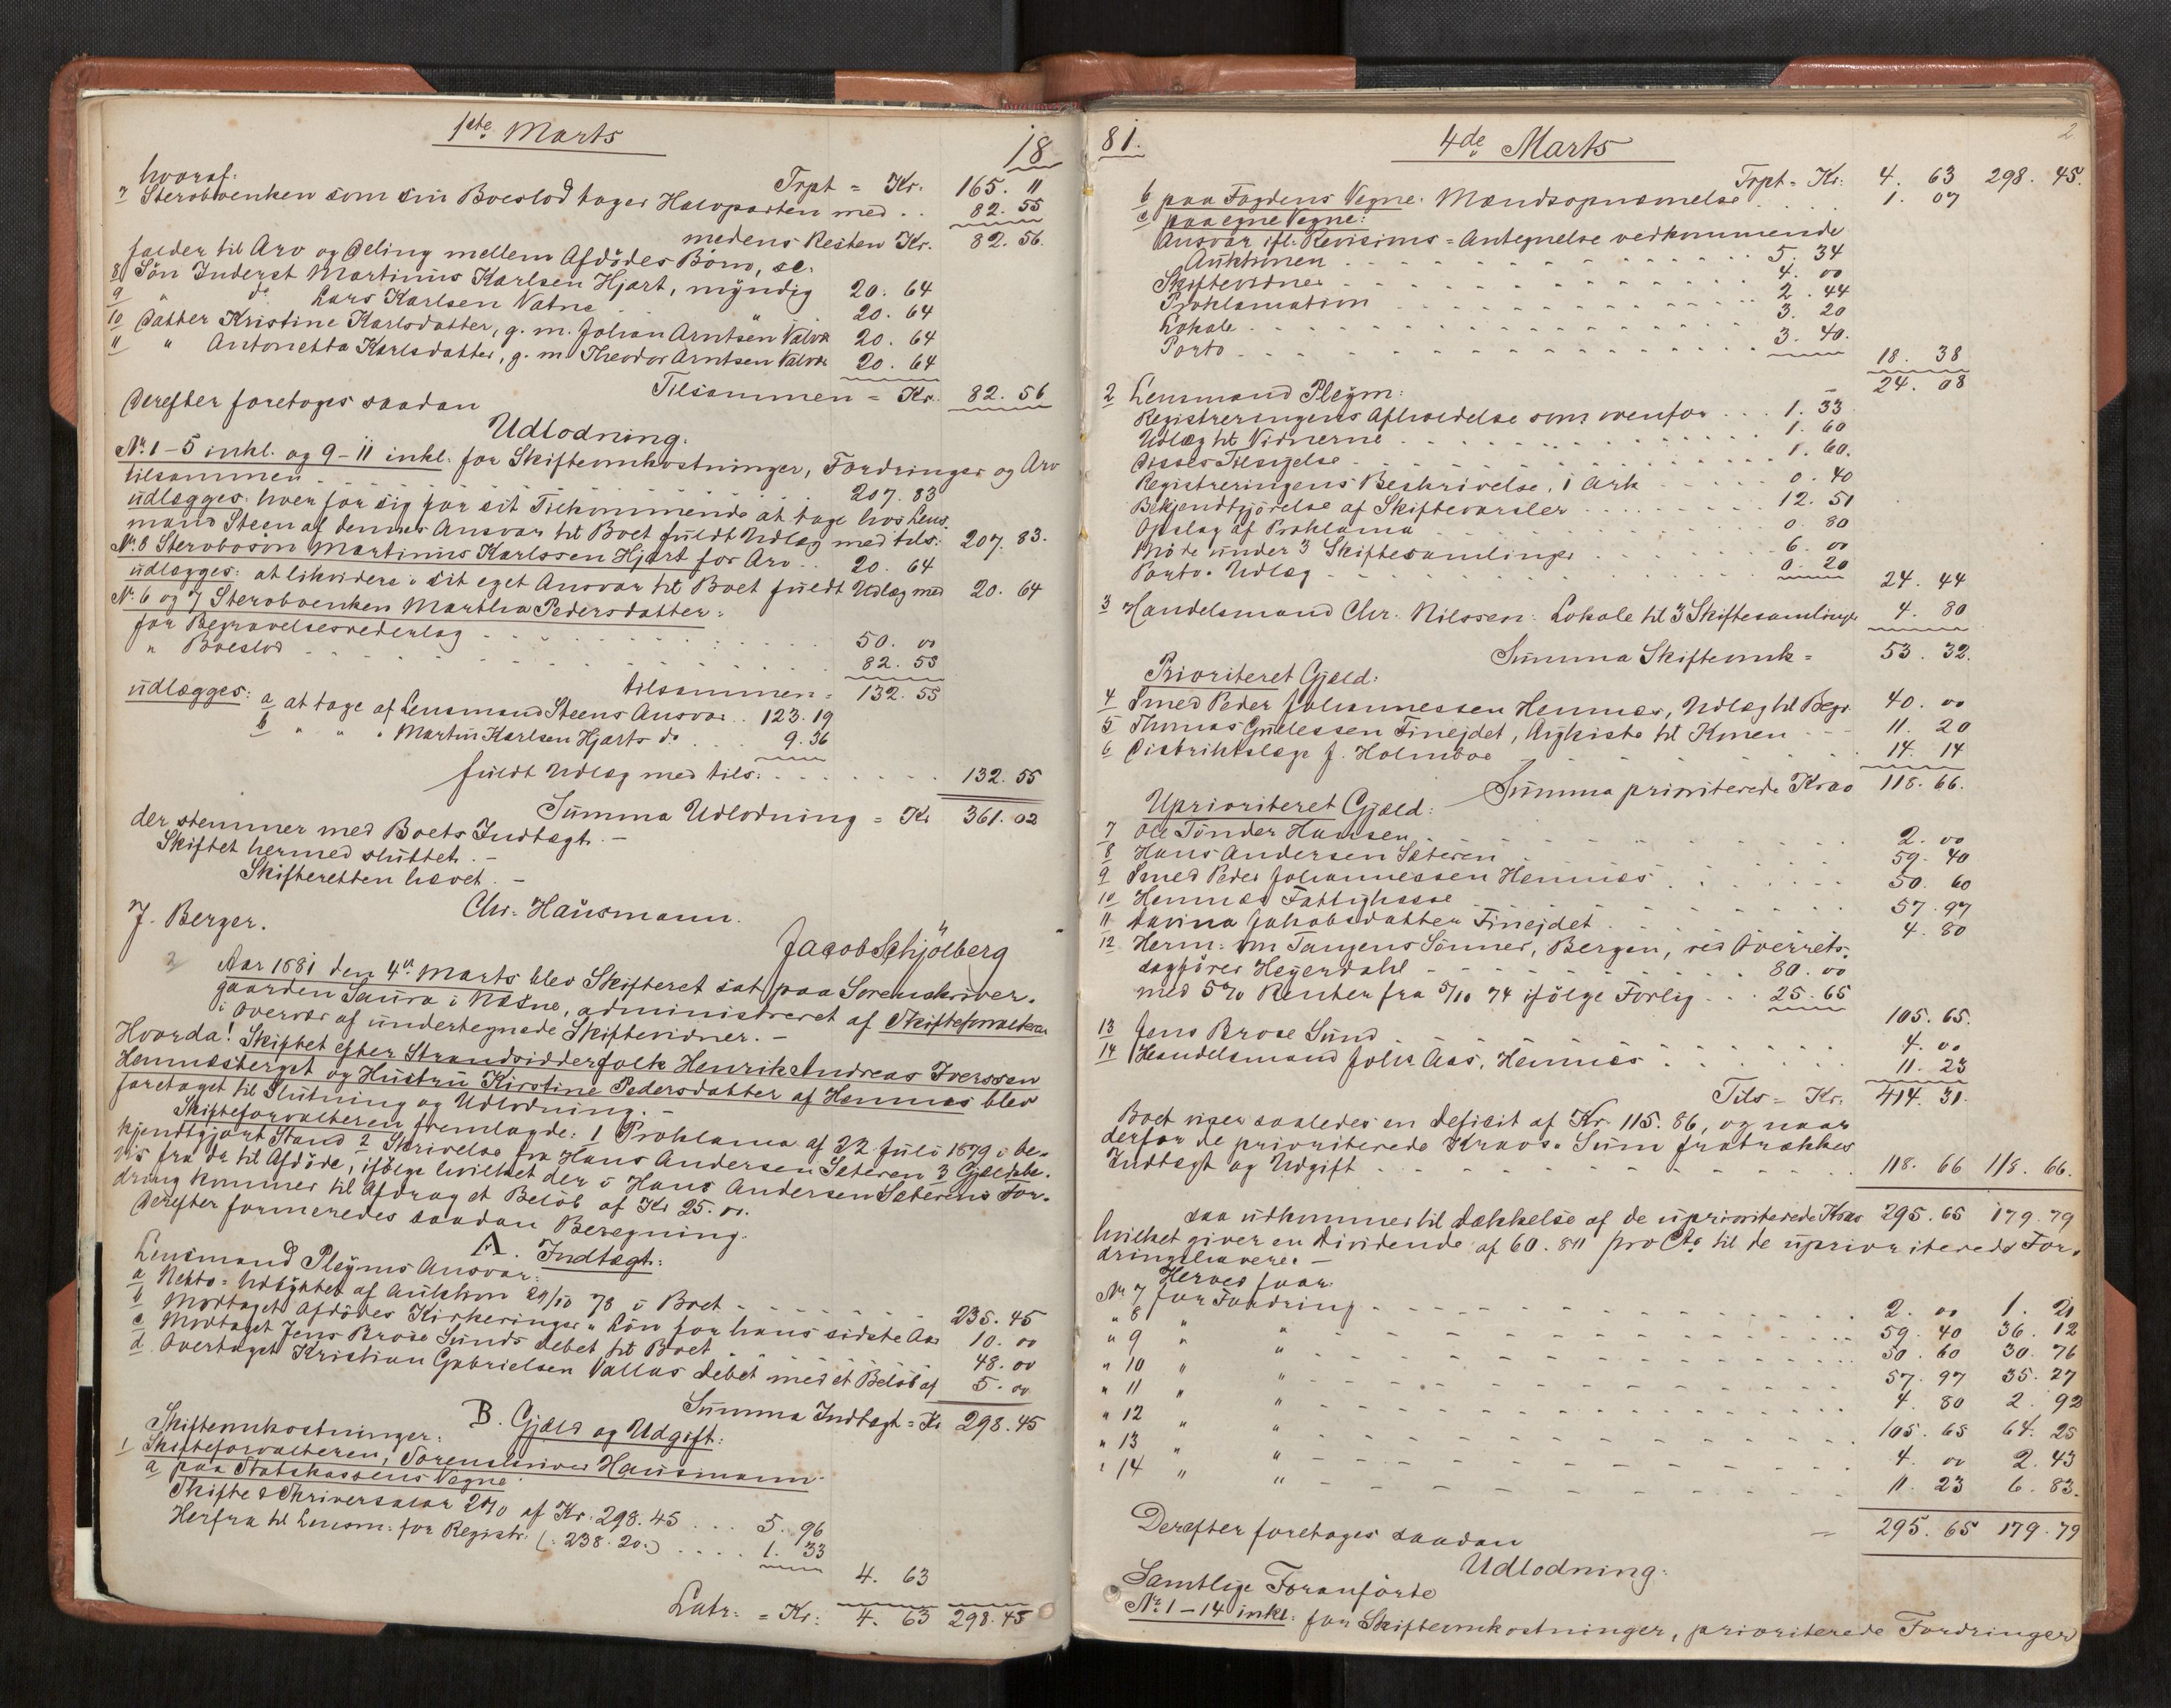 1ste Marts
18
hvoraf:
Trpt = Kr. 165. 11
7 Sterboenken som sin Boeslod tager Halvparten med . . 82. 55
medens Resten Kr. 82. 56.
falder til Arv og Deling mellem Afdödes Börn, sc.
8 Sön Inderst Martinus Karlsen Hjart, myndig 20. 64
9 " do Lars Karlsen Vatne . . " . . 20. 64
10 Datter Kristine Karlsdatter, g. m. Johan Arntsen Valvn 20. 64
11 " Antonetta Karlsdatter, g. m. Theodor Arntsen Valvn 20. 64
Tilsammen = Kr. 82. 56
Derefter foretoges saadan
Udlodning:
No. 1-5 inkl. og 9-11 inkl. for Skifteomkostninger, Fordringer og Arv
tilsammen . . . 207. 83
udlægges: hver for sig for sit Tilkommende at tage hos Lens-
mand Steen af dennes Ansvar til Boet fuldt Udlæg med tils: 207. 83.
No. 8 Stervbosön Martinus Karlssen Hjart for Arv . . 20. 64
udlægges: at likvidere i sit eget Ansvar til Boet fuldt Udlæg med 20. 64
No. 6 og 7 Sterboenken Martha Pedersdatter:
for Begravelsesvederlag . . . 50. 00
" Boeslod . . . 82. 55
tilsammen = 132. 55
udlægges: a at tage af Lensmand Steens Ansvar . . 123. 19
b " " " Martin Karlsen Hjarts do . . . 9. 36
fuldt Udlæg med tils: . . . 132. 55
Summa Udlodning = Kr 361. 02
der stemmer med Boets Indtægt. -
Skiftet hermed sluttet. -
Skifteretten hævet. -
Chr. Hausmann.
J. Berger.
Jacob Schjölberg
2 Aar 1881 den 4de Marts blev Skifteret sat paa Sorenskriver-
gaarden Saura i Næsne, administreret af Skifteforvalteren
i Overvær af undertegnede Skiftevidner. -
Hvorda! Skiftet efter Strandsidderfolk Henrik Andreas Iverssen
Hemnæsberget og Hustru Kirstine Pedersdatter af Hemnæs blev
foretaget til Slutning og Udlodning. -
Skifteforvalteren fremlagde: 1 Proklama af 22 Juli 1879 i be-
kjendtgjort Stand 2 Skrivelse fra Hans Andersen Sæteren 3 Gjældsbe-
vis fra do til Afdöde, ifölge hvilket der i Hans Andersen Sæterens For-
dring kommer til Afdrag et Belöb af Kr 25. 00.
Derefter formeredes saadan Beregning.
A. Indtægt:
Lensmand Pleyms Ansvar:
a Netto-Udbyttet af Auktion 29/10 78 i Boet . . . 235. 45
b Modtaget Afdödes Kirkeringer-Lön for hans sidste Aar 10. 00
c Modtaget Jens Brose Sunds Debet til Boet . . . 48. 00
d Overtaget Kristian Gabrielsen Vallas Debet med et Belöb af 5. 00
Summa Indtægt = Kr 298. 45
B. Gjæld og Udgift:
Skifteomkostninger:
1 Skifteforvalteren, Sorenskriver Hausmann
a paa Statskassens Vegne
Skifte & Skriversalær 2 % af Kr. 298. 45 . . . 5. 96
Herfra til Lensm: for Registr: (: 238. 20 :) . . . 1. 33
4. 63
Latr: = Kr: 4. 63 298. 45
81.
4de Marts
2
Trpt = Kr: 4. 63 298. 45.
b paa Fogdens Vegne: Mændsopnævnelse . . . 1. 07
c paa egne Vegne:
Ansvar ifl. Revisions-Antegnelse vedkommende
Auktionen . . . 5. 34
Skiftevidner . . . 4. 00
Proklamation . . . 2. 44
Lokale . . . 3. 20
Porto . . . 3. 40.
18. 38
24. 08
2 Lensmand Pleym:
Registreringens Afholdelse som ovenfor . . . 1. 33
Udlæg til Vidnerne . . . 1. 60
Disses Tilsigelse . . . 1. 60.
Registreringens Beskrivelse, 1 Ark . . . 0. 40
Bekjendtgjörelse af Skiftevarsler . . . 12. 51
Opslag af Proklama . . . 0. 80
Möde under 3 Skiftesamlinger . . . 6. 00
Porto-Udlæg . . . 0. 20
24. 44
3 Handelsmand Chr. Nilssen: Lokale til 3 Skiftesamlinger 4. 80
Summa Skifteomk = 53. 32.
Prioriteret Gjæld:
4 Smed Peder Johannessen Hemnæs, Udlæg til Begr. 40. 00
5 Thomas Gullessen Finejdet, Ligkiste til Konen . . . 11. 20
6 Distriktslæge J. Holmboe . . . 14. 14
Summa prioriterede Krav 118. 66.
Uprioriteret Gjæld:
7 Ole Tönder Hansen . . . 2. 00
8 Hans Andersen Sæteren . . . 59. 40
9 Smed Peder Johannessen Hemnæs . . . 50. 60
10 Hemnæs Fattigkasse . . . 57. 97
11 Lavina Jakobsdatter Finejdet . . . 4. 80
12 Herm: om Tangens Sönner, Bergen, ved Overrets-
sagförer Heyerdahl . . . 80. 00
med 5 % Renter fra 5/10 74 ifölge Forlig . . . 25. 65
105. 65.
13 Jens Brose Sund . . . 4. 00
14 Handelsmand Johs Aas, Hemnæs . . . 11. 23
Tils = Kr. 414. 31.
Boet viser saaledes en Defisit af Kr. 115. 86, og naar
derfor de prioriterede Kravs-Sum fratrækkes
Indtægt og Udgift . . . 118. 66 118. 66.
saa udkommer til Dækkelse af de uprioriterede Krav 295. 65 179. 79
hvilket giver en Dividende af 60. 811 pro Cto til de uprioriterede For-
dringshavere. -
Herved faar:
No 7 for Fordring . . . 2. 00 1. 21
" 8 " " . . . 59. 40 36. 12
" 9 " " . . . 50. 60 30. 76
" 10 " " . . . 57. 97 35. 27
" 11 " " . . . 4. 80 2. 92
" 12 " " . . . 105. 65 64. 25
" 13 " " . . . 4. 00 2. 43
" 14 " " . . . 11. 23 6. 83.
295. 65 179. 79
Derefter foretoges saadan
Udlodning:
Samtlige Foranförte
No. 1-14 inkl. for Skifteomkostninger, prioriterede Fordringer